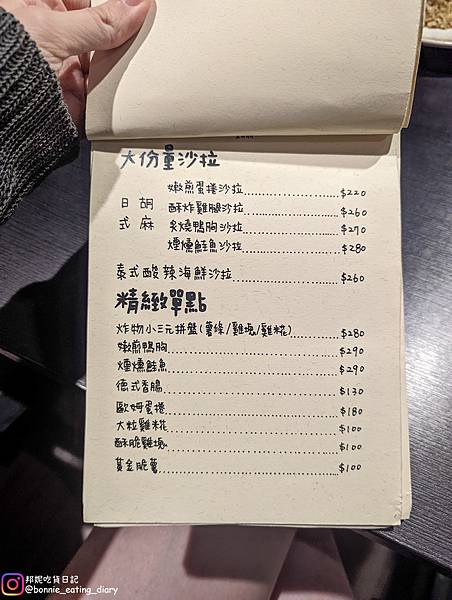 大份量沙拉
嫩煎蛋捲沙拉 $220
日胡 酥炸雞腿沙拉 $260
式麻 炙燒鴨胸沙拉 $270
煙燻鮭魚沙拉 $280
泰式酸辣海鮮沙拉 $260
精緻單點
炸物小三元拼盤(薯條/雞塊/雞柳) $280
嫩煎鴨胸 $290
煙燻鮭魚 $290
德式香腸 $130
歐姆蛋捲 $180
大粒雞花 $100
酥脆雞塊 $100
黃金脆薯 $100
邦妮吃貨日記
@bonnie_eating_diary